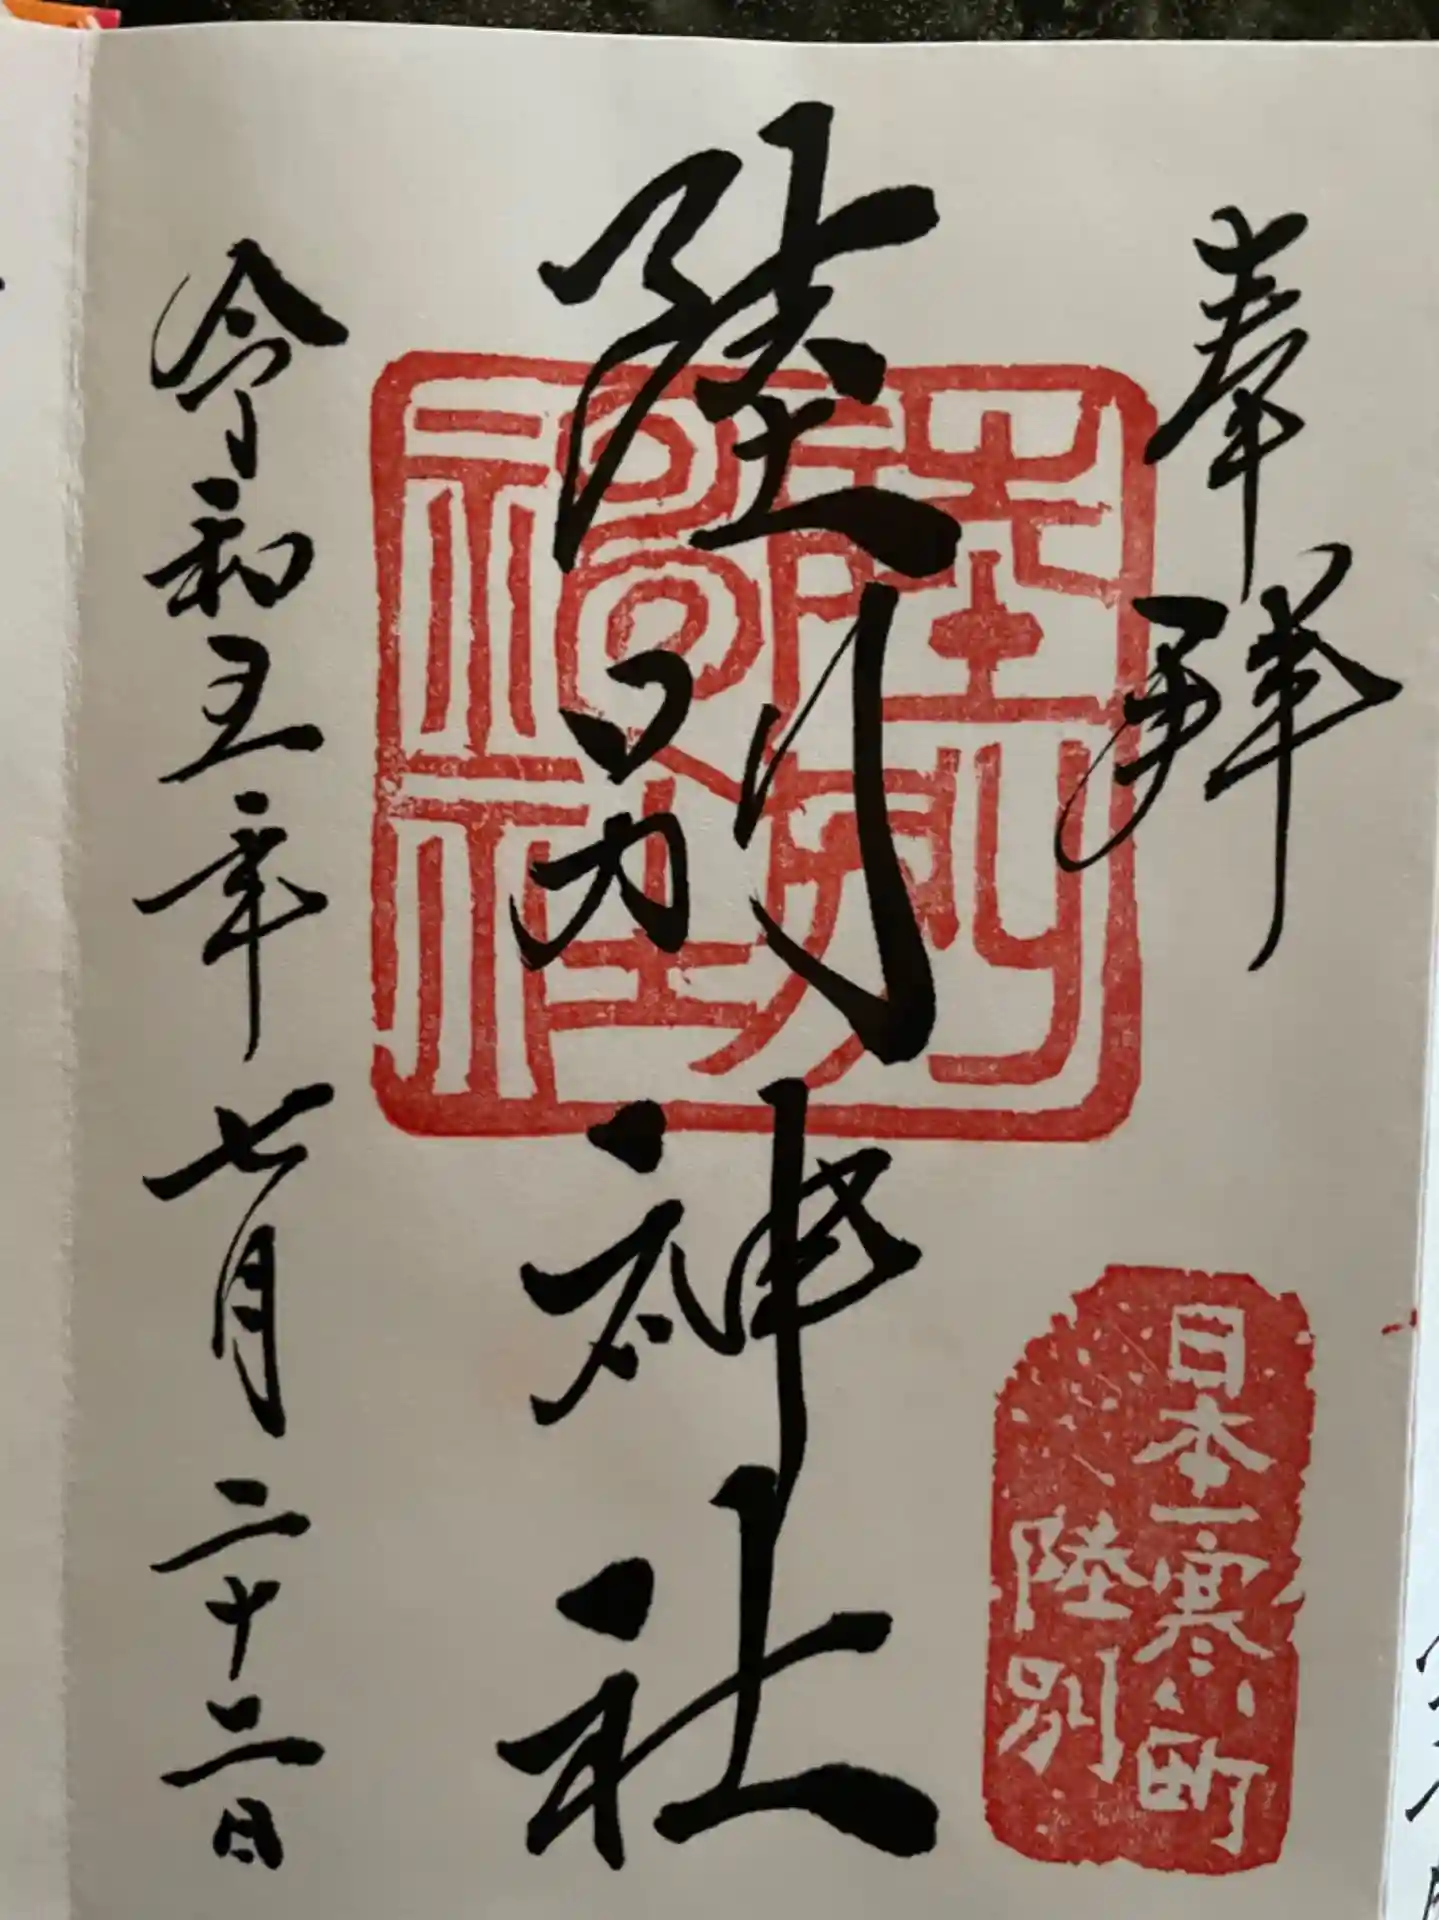 奉拝
日本一寒い町
陸別
陸別神社
陸別
神社
令和五年七月二十二日